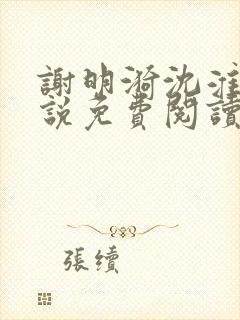 謝明漪沈淮
說免費閱讀
張續